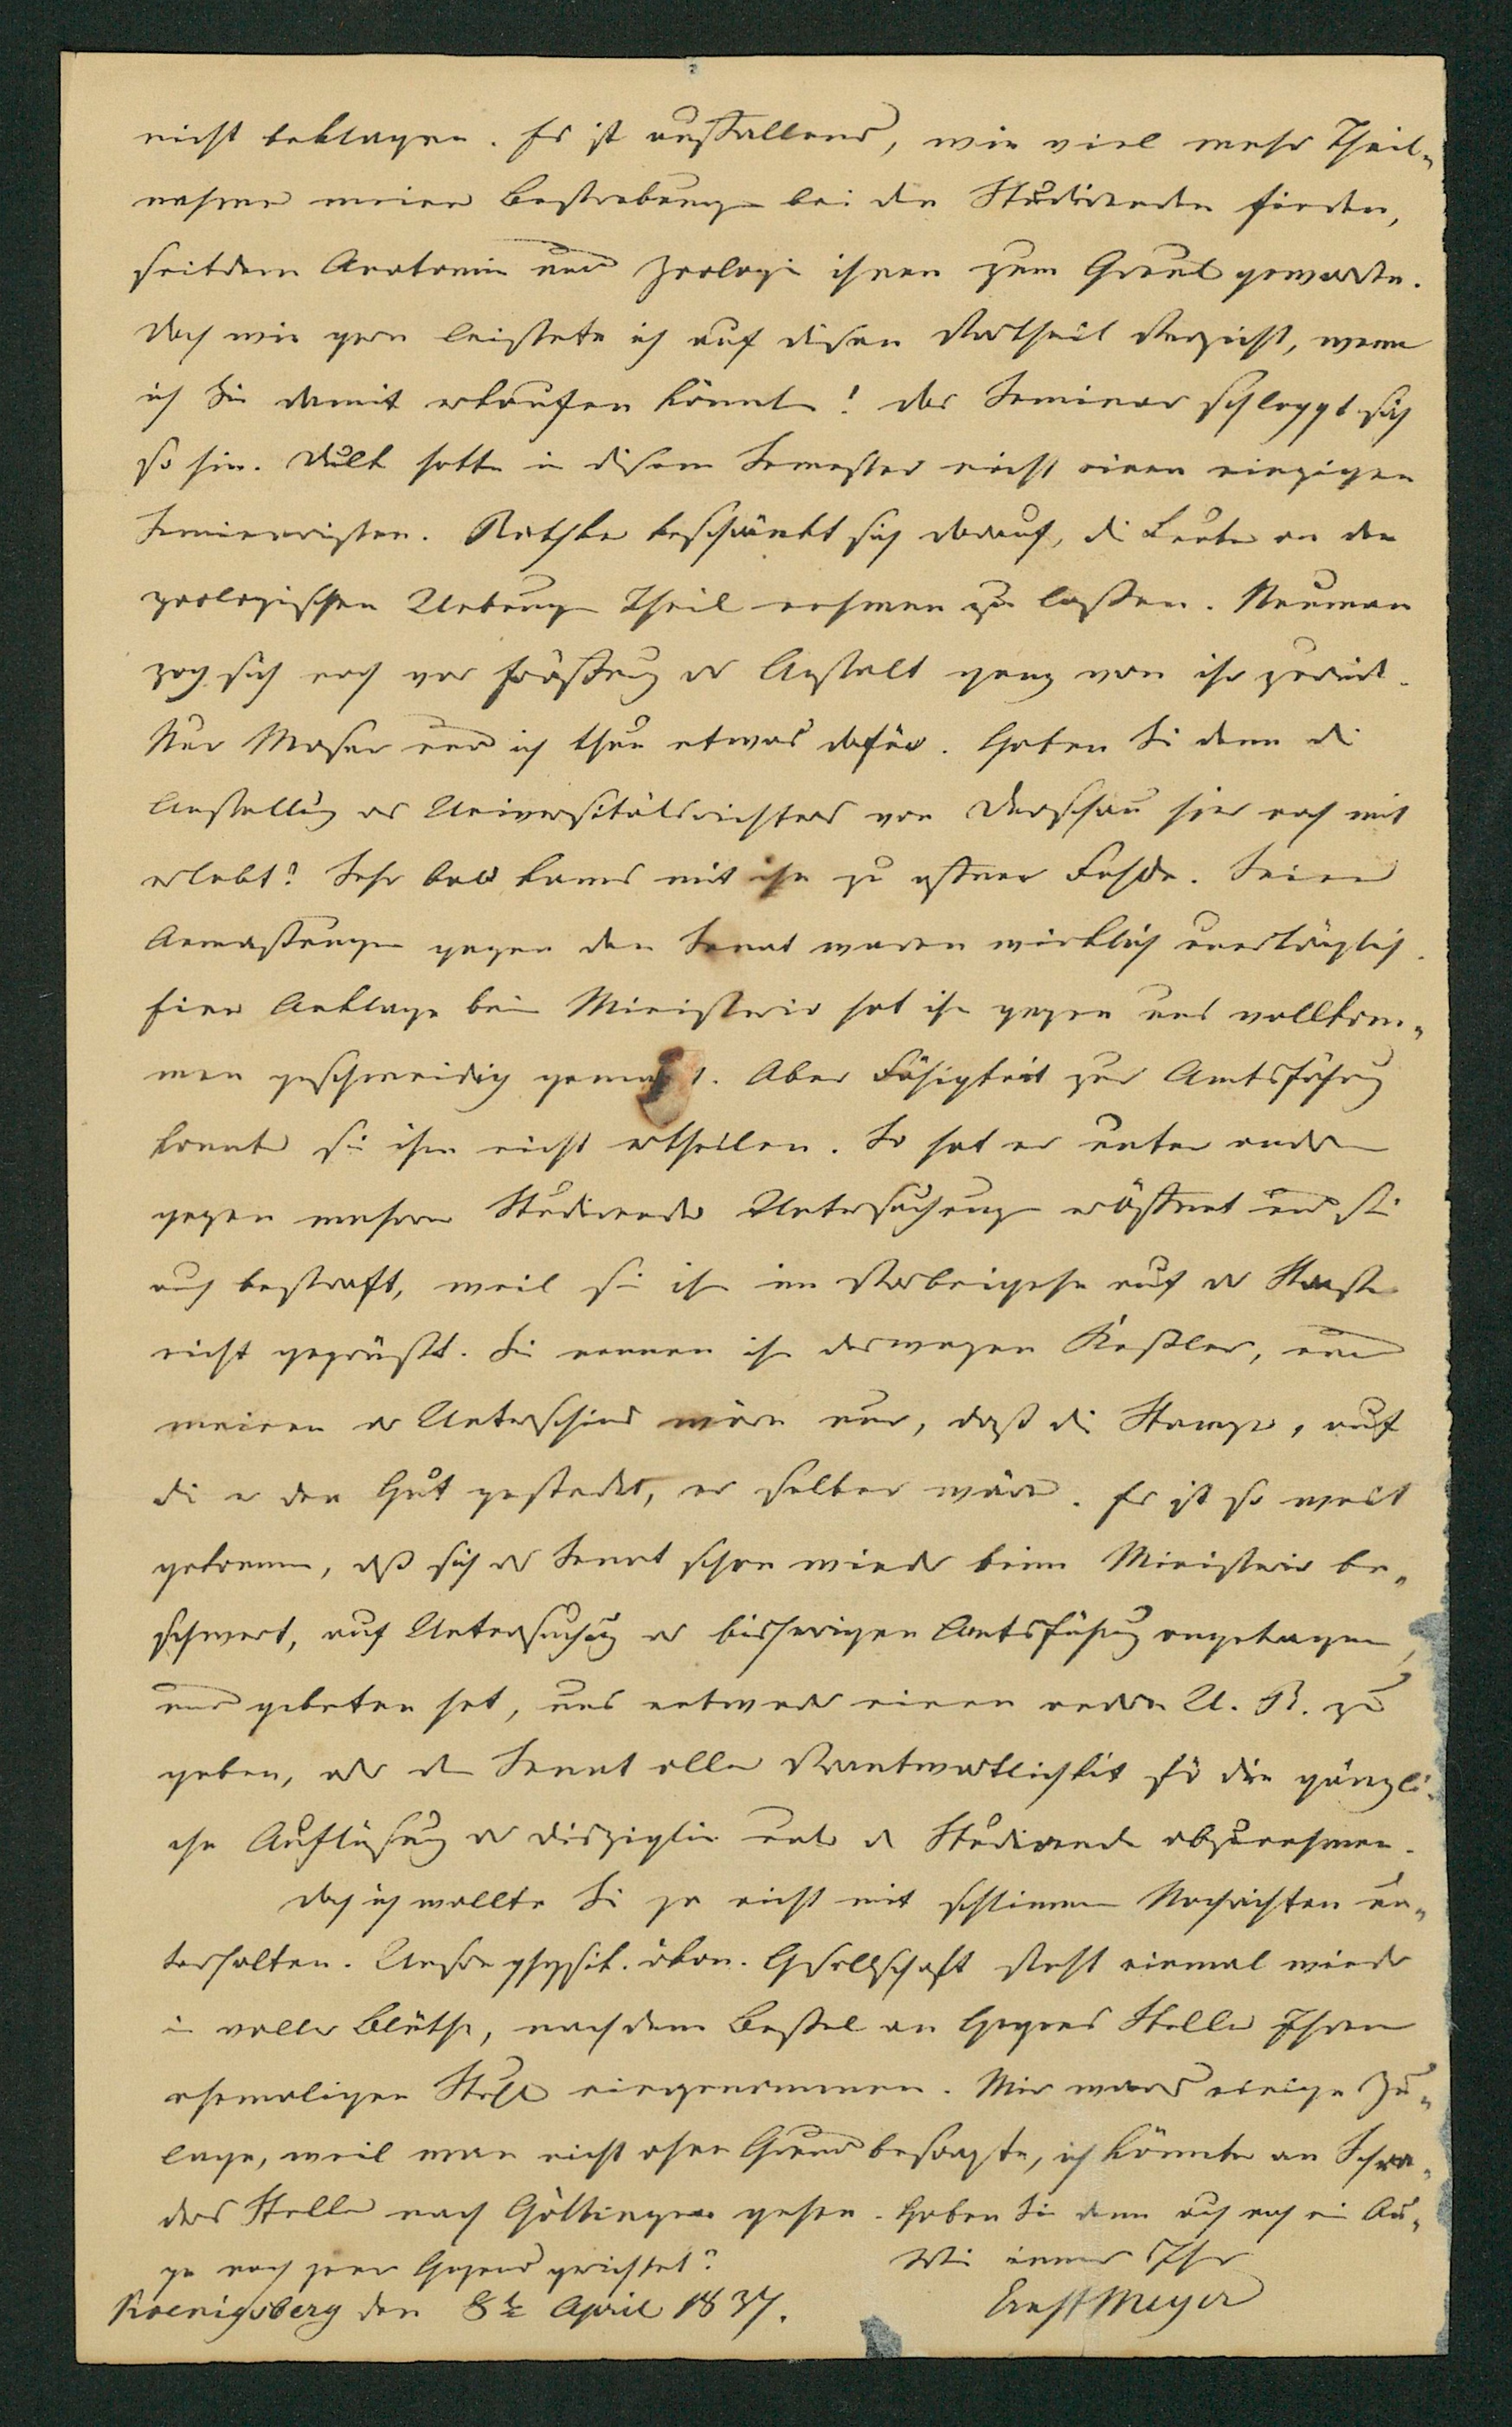 nicht beklagen. Es ist auffallend, wie viel mehr Theil-
nahme meine Bestrebungen bei den Studirenden finden,
seitdem Anatomie und Zoologie ihnen zum Greul geworden.
Doch wie gern leistete ich auf diesen Vortheil Verzicht, wenn
ich Sie damit erkaufen könnte! Das Seminar schleppt sich
so hin. Dulk hatte in diesem Semester nicht einen einzigen
Seminaristen. Rathke beschränkt sich darauf, die Leute an den
zoologischen Uebungen Theil nehmen zu lassen. Neuman
zog sich noch vor Eröffnung der Anstalt ganz von ihr zurück.
Nur Moser und ich thun etwas dafür. Haben Sie denn die
Anstellung des Universitätsrichters von Derschau hier noch mit
erlebt? Sehr bald kams mit ihm zu offner Fehde. Seine
Anmassungen gegen den Senat waren wirklich unerträglich.
Eine Anklage beim Ministerio hat ihn gegen uns vollkom-
men geschmeidig gemacht. Aber Fähigkeit zur Amtsführung
konnte sie ihm nicht ertheilen. So hat er unter andern
gegen mehrere Studirende Untersuchungen eröffnet und sie
auch bestraft, weil sie ihn im Vorbeigehn auf der Strasse
nicht gegrüsst. Sie nennen ihn deswegen Gessler, und
meinen der Unterschied wäre nur, dass die Stange, auf
die er den Hut gesteckt, er selber wäre. Es ist so weit
gekommen, dass sich der Senat schon wieder beim Ministerio be-
schwert, auf Untersuchung der bisherigen Amtsführung angetragen,
und gebeten hat, uns entweder einen andern U. R. zu
geben, oder dem Senat alle Verantwortlichkeit für die gänzli-
che Auflösung der Disziplin unter den Studirenden abzunehmen.
Doch ich wollte Sie ja nicht mit schlimmen Nachrichten un-
terhalten. Unsre physik. ökon. Gesellschaft steht einmal wieder
in voller Blüthe, nachdem Bessel an Hagens Stelle Ihren
ehemaligen Stuhl eingenommen. Mir ward einige Zu-
lage, weil man nicht ohne Grund besorgte, ich könnte an Schra-
ders Stelle nach Göttingen gehen. Haben Sie denn auch noch ein Au-
ge nach jener Gegend gerichtet?
Wie immer Ihr
Koenigsberg den 8t April 1837.
Ernst Meyer